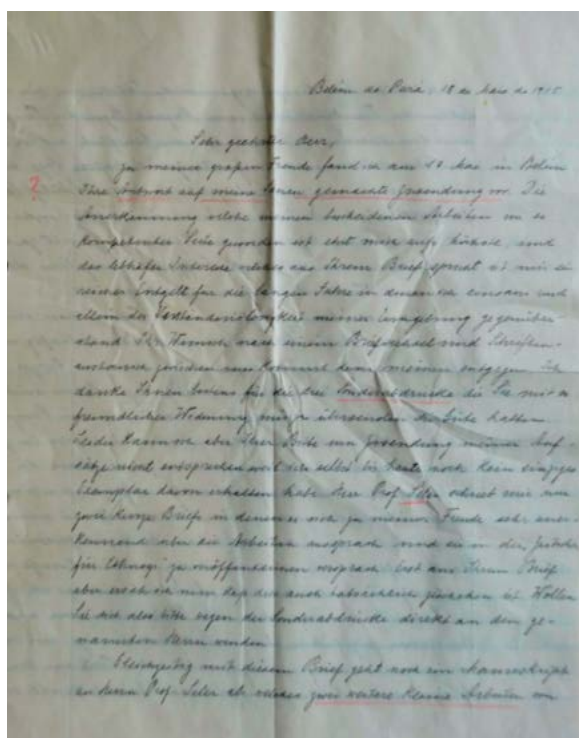 Belém do Pará, 18 de Maio de 1915
Sehr geehrter Herr,
Zu meiner großen Freude fand ich am 17 Mai in Belém
? Ihre Antwort auf meine Ihnen gemachte Zusendung vor. Die
Anerkennung welche meinen bescheidenen Arbeiten von so
kompetenter Seite geworden ist ehrt mich aufs höchste, und
das lebhafte Interesse welches aus Ihrem Brief spricht ist mir ein
reicher Entgelt für die langen Jahre in denen ich einsam und
allein der Verständnislosigkeit meiner Umgebung gegenüber
stand. Ihr Wunsch nach einem Briefwechsel und Schriften-
austausch zwischen uns kommt dem meinen entgegen. Ich
danke Ihnen bestens für die drei Sonderabdrucke die Sie mit so
freundlicher Widmung mir zu übersenden die Güte hatten.
Leider kann ich aber Ihrer Bitte um Zusendung meiner Auf-
sätze nicht entsprechen weil ich selbst bis heute noch kein einziges
Exemplar davon erhalten habe. Herr Prof. Seler schrieb mir nur
zwei kurze Briefe in denen er sich zu meiner Freude sehr aner-
kennend über die Arbeiten aussprach und sie in der Zeitschr.
für Ethnogr. zu veröffentlichen versprach. Erst aus Ihrem Brief
aber ersah ich nun daß dies auch tatsächlich geschehen ist. Wollen
Sie sich also bitte wegen der Sonderabdrücke direkt an den ge-
nannten Herrn wenden.
Gleichzeitig mit diesem Brief geht noch ein Manuskript
an Herrn Prof. Seler ab welches zwei weitere kleine Arbeiten von